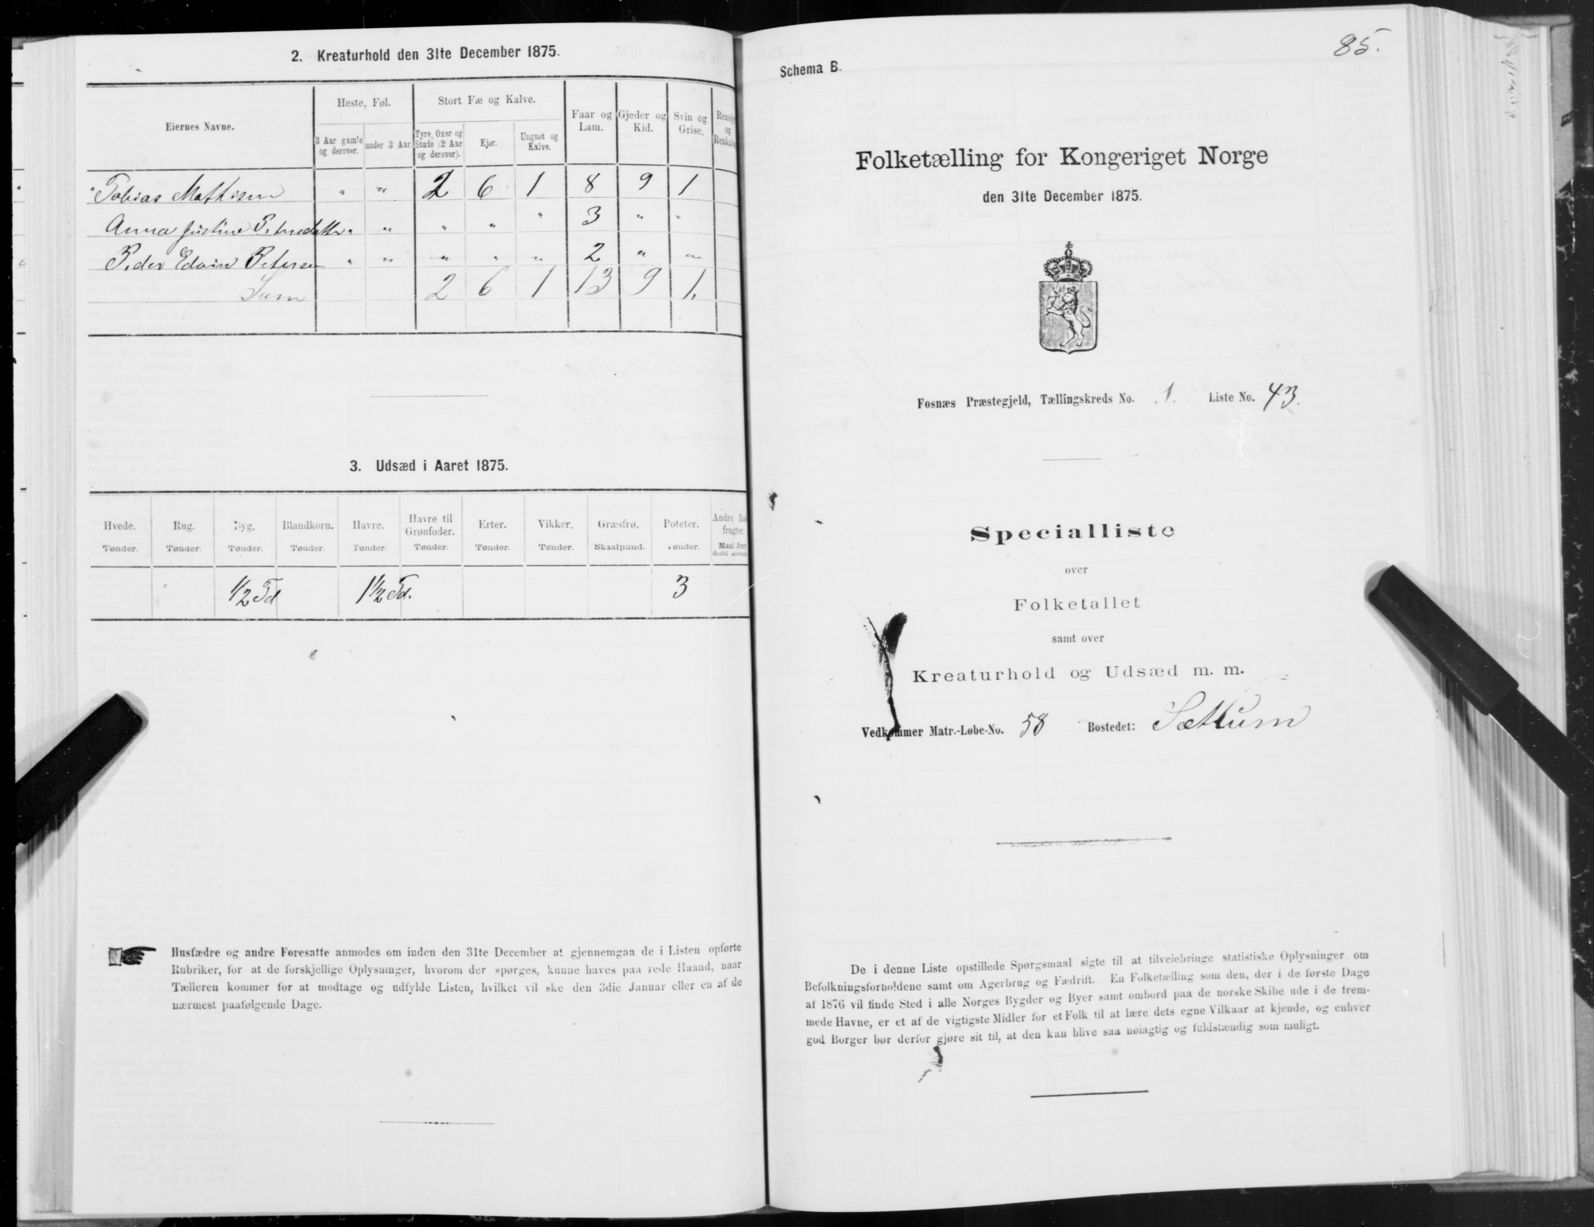 2. Kreaturhold den 31te December 1875.
Eiernes Navne.
Heste, Føl.
Stort Fæ og Kalve.
Faar og Lam.
Gjeder og Kid.
Svin og Grise.
3 Aar gamle og derover.
under 3 Aar.
Tyre, Oxer og Stude (2 Aar og derover).
Kjør.
Ungnøt og Kalve.
Tobias Mathisen " " 2 6 1 8 9 1
Anna Justine " " " " " 3 " "
Peder Edvin Petersen " " " " " 2 " "
Sum 2 6 1 13 9 1.
3. Udsæd i Aaret 1875.
Hvede. Rug. Byg. Blandkorn. Havre. Havre til Grønfoder. Erter. Vikker. Græsfrø. Poteter.
Tønder. Tønder. Tønder. Tønder. Tønder. Tønder. Tønder. Tønder. Skaalpund. Tønder.
1/2 Td 1 1/2 Td. 3
Husfædre og andre Foresatte anmodes om inden den 31te December at gjennemgaa de i Listen opførte
Rubriker, for at de forskjellige Oplysninger, hvorom der spørges, kunne haves paa rede Haand, naar
Tælleren kommer for at modtage og udfylde Listen, hvilket vil ske den 3die Januar eller en af de
nærmest paafølgende Dage.
85.
Schema B.
Folketælling for Kongeriget Norge
den 31te December 1875.
Fosnæs Præstegjeld, Tællingskreds No. 1. Liste No. 43.
Specialliste
over
Folketallet
samt over
Kreaturhold og Udsæd m. m.
Vedkommer Matr.-Løbe-No. 58 Bostedet: Sættum
De i denne Liste opstillede Spørgsmaal sigte til at tilveiebringe statistiske Oplysninger om
Befolkningsforholdene samt om Agerbrug og Fædrift. En Folketælling som den, der i de første Dage
af 1876 vil finde Sted i alle Norges Bygder og Byer samt ombord paa de norske Skibe ude i de frem-
mede Havne, er et af de vigtigste Midler for et Folk til at lære dets egne Vilkaar at kjende, og enhver
god Borger bør derfor gjøre sit til, at den kan blive saa nøiagtig og fuldstændig som muligt.